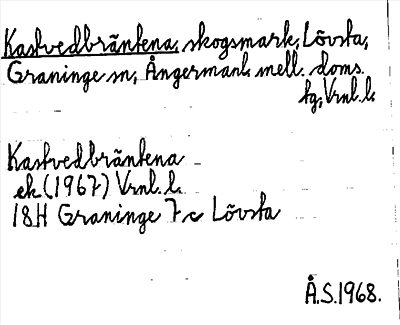 Kastvedbräntena, skogsmark, Lövsta,
Graninge sn, Ångermanl. mell. doms.
tg, Vrnl. l.
Kastvedbräntena
ek (1967) Vrnl. l.
18H Graninge 7c Lövsta
Å.S. 1968.